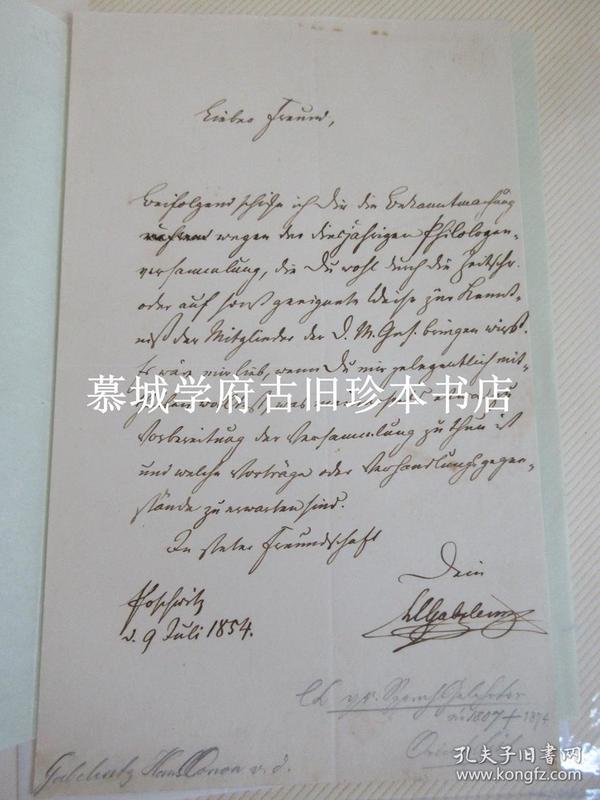 Lieber Freund,
Beifolgend schicke ich Dir die Bekanntmachung
wegen der diesjährigen Philologen-
versammlung, die Du wohl durch die Zeitschr.
oder auf sonst geeignete Weise zur Kennt-
niß der Mitglieder der D. M. Ges. bringen wirst.
Es wäre mir lieb, wenn Du mir gelegentlich mit-
慕城学府古旧珍本书店
Vorbereitung der Versammlung zu thun ist
und welche Vorträge oder Verhandlungsgegen-
stände zu erwarten sind.
In steter Freundschaft
Dein
HCGabelentz
Poschwitz
d. 9 Juli 1854.
Sprachgelehrter
1807 + 1874
Gabelentz Hans Conon v. d.
孔夫子旧书网
www.kongfz.com